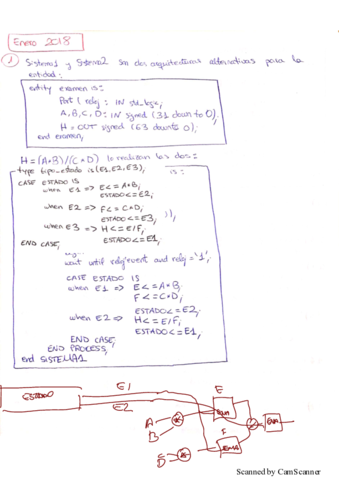 Enero 2018
1) Sistema1 y Sistema2 son dos arquitecturas alternativas para la
entidad:
entity examen is:
Port ( reloj : IN std_logic,
A, B, C, D: IN signed (31 down to 0);
H = OUT signed (63 downto 0);
end examen;
H = (A*B)/(C*D) lo realizan los dos:
type tipo_estado is (E1, E2, E3);
is:
CASE ESTADO IS
when E1 => E <= A*B;
ESTADO <= E2;
when E2 => F <= C*D;
ESTADO <= E3;
when E3 => H <= E/F;
ESTADO <= E1;
END CASE;
wait until reloj'event and reloj = '1';
CASE ESTADO IS
when E1 => E <= A*B;
F <= C*D;
ESTADO <= E2;
when E2 => H <= E/F;
ESTADO <= E1;
END CASE;
END PROCESS;
end SISTEMA1
ESTADO
E1
E2
E
A
B
F
C
D
ENA
ENA
ENA
Scanned by CamScanner